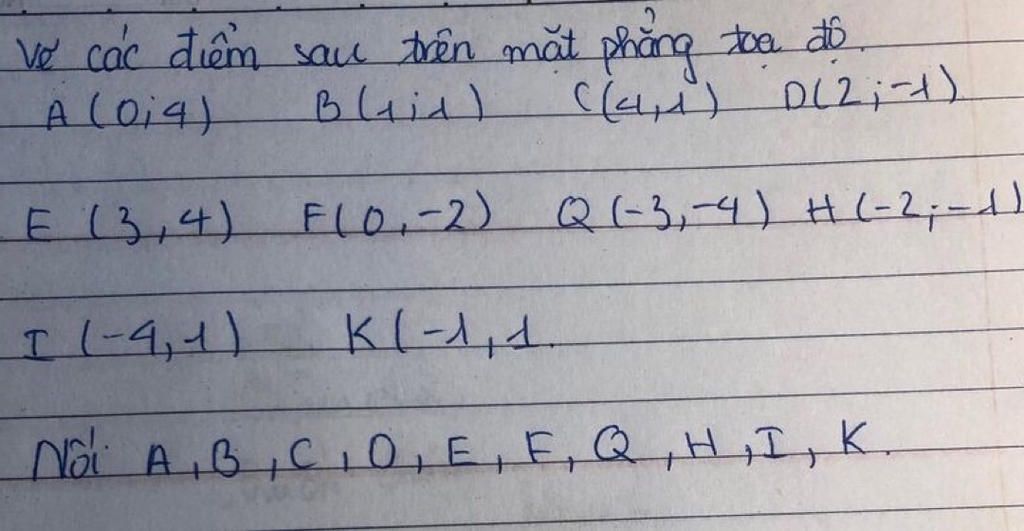 Vẽ các điểm sau trên mặt phẳng tọa độ.
A (0;4) B(1;1) C(4,1) D(2;-1)
E (3,4) F(0,-2) Q(-3,-4) H(-2;-1)
I (-4,1) K(-1,1.
Nối A, B, C, D, E, F, Q, H, I, K.